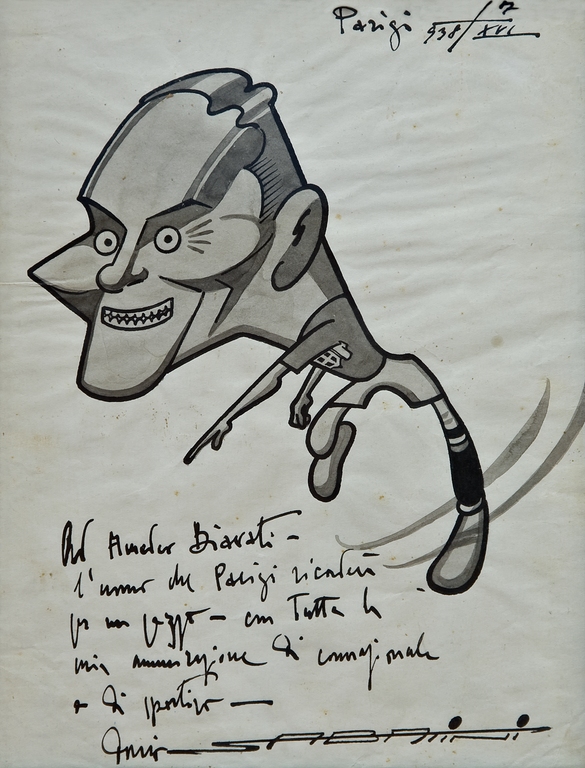 Parigi 938/XVI
7
Ad Amedeo Biavati -
l'uomo che Parigi ricorderà
per un pezzo - con tutta la
mia ammirazione di connazionale
e di sportivo -
SABATINI